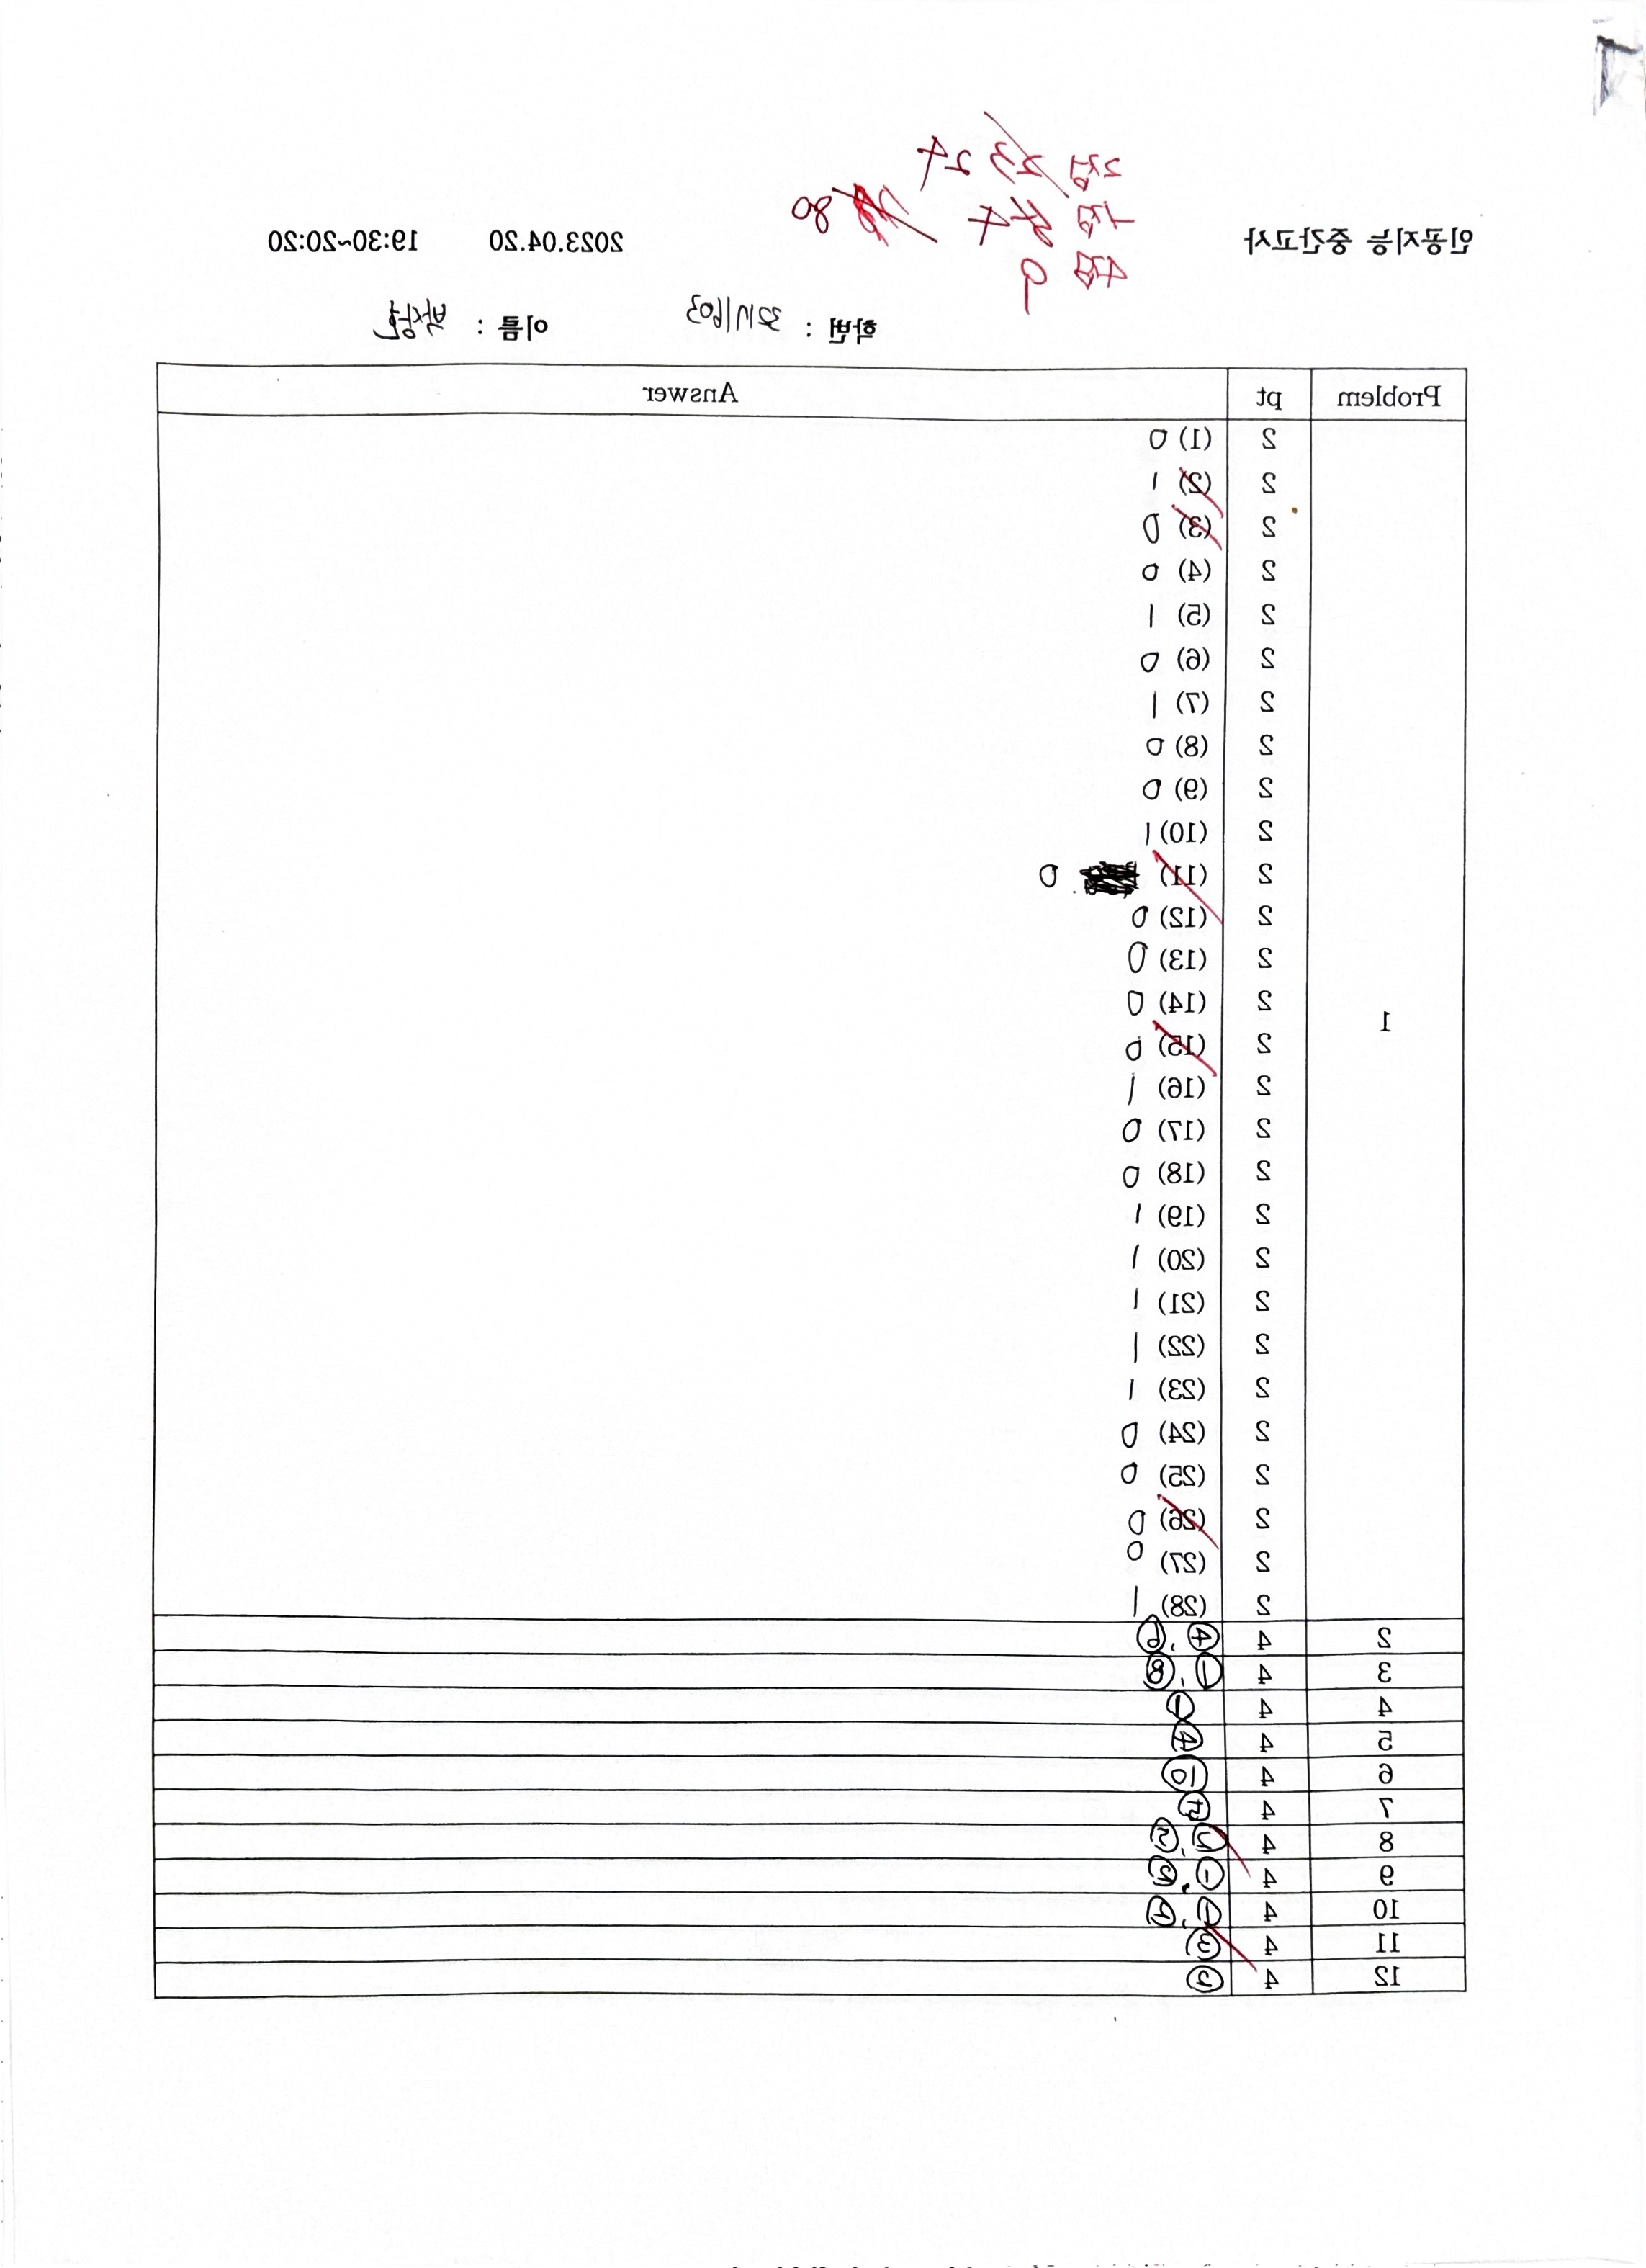 2점 23 24
1점 4
4점 9
80
인공지능 중간고사 2023.04.20 19:30~20:20
학번 : 32171603 이름 :
Problem pt Answer
1
2 (1) 0
2 (2) 1
2 (3) 0
2 (4) 0
2 (5) 1
2 (6) 0
2 (7) 1
2 (8) 0
2 (9) 0
2 (10) 1
2 (11) 0
2 (12) 0
2 (13) 0
2 (14) 0
2 (15) 0
2 (16) 1
2 (17) 0
2 (18) 0
2 (19) 1
2 (20) 1
2 (21) 1
2 (22) 1
2 (23) 1
2 (24) 0
2 (25) 0
2 (26) 0
2 (27) 0
2 (28) 1
2 4 ④, ⑥
3 4 ①, ⑧
4 4 ①
5 4 ④
6 4 ⑩
7 4
8 4
9 4 ①,
10 4
11 4 ③
12 4 ②